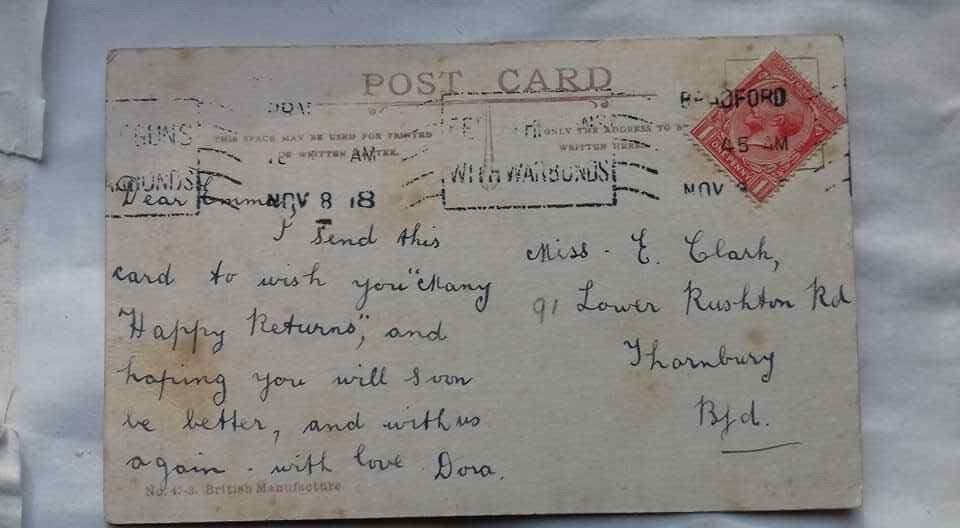 POST CARD
BRADFORD
GUNS
THIS SPACE MAY BE USED FOR PRINTED
OR WRITTEN MATTER.
AM
ONLY THE ADDRESS TO BE
WRITTEN HERE.
45 AM
WITH WAR BONDS
NOV 8 18
NOV
ONE PENNY
1
1
Dear Emma,
I send this
card to wish you "Many
Happy Returns", and
hoping you will soon
be better, and with us
again - with love Dora.
Miss - E. Clark,
91 Lower Rushton Rd
Thornbury
Bfd.
No. 47-3. British Manufacture